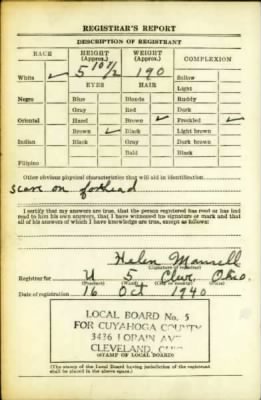 REGISTRAR'S REPORT
DESCRIPTION OF REGISTRANT
RACE HEIGHT (Approx.) WEIGHT (Approx.) COMPLEXION
5 10 1/2 190
White ✓ Sallow
EYES HAIR Light
Negro Blue Blonde Ruddy
Gray Red Dark
Oriental Hazel Brown ✓ Freckled ✓
Brown ✓ Black Light brown
Indian Black Gray Dark brown
Bald Black
Filipino
Other obvious physical characteristics that will aid in identification
scare on forhead
I certify that my answers are true; that the person registered has read or has had
read to him his own answers; that I have witnessed his signature or mark and that
all of his answers of which I have knowledge are true, except as follows:
Helen
(Signature of registrar)
Registrar for U 5 Clev. Ohio
(Precinct) (Ward) (City or county) (State)
Date of registration 16 Oct 1940
LOCAL BOARD No. 5
FOR CUYAHOGA COUNTY
3436 LORAIN AVE
CLEVELAND, OHIO
(STAMP OF LOCAL BOARD)
(The stamp of the Local Board having jurisdiction of the registrant
shall be placed in the above space.)